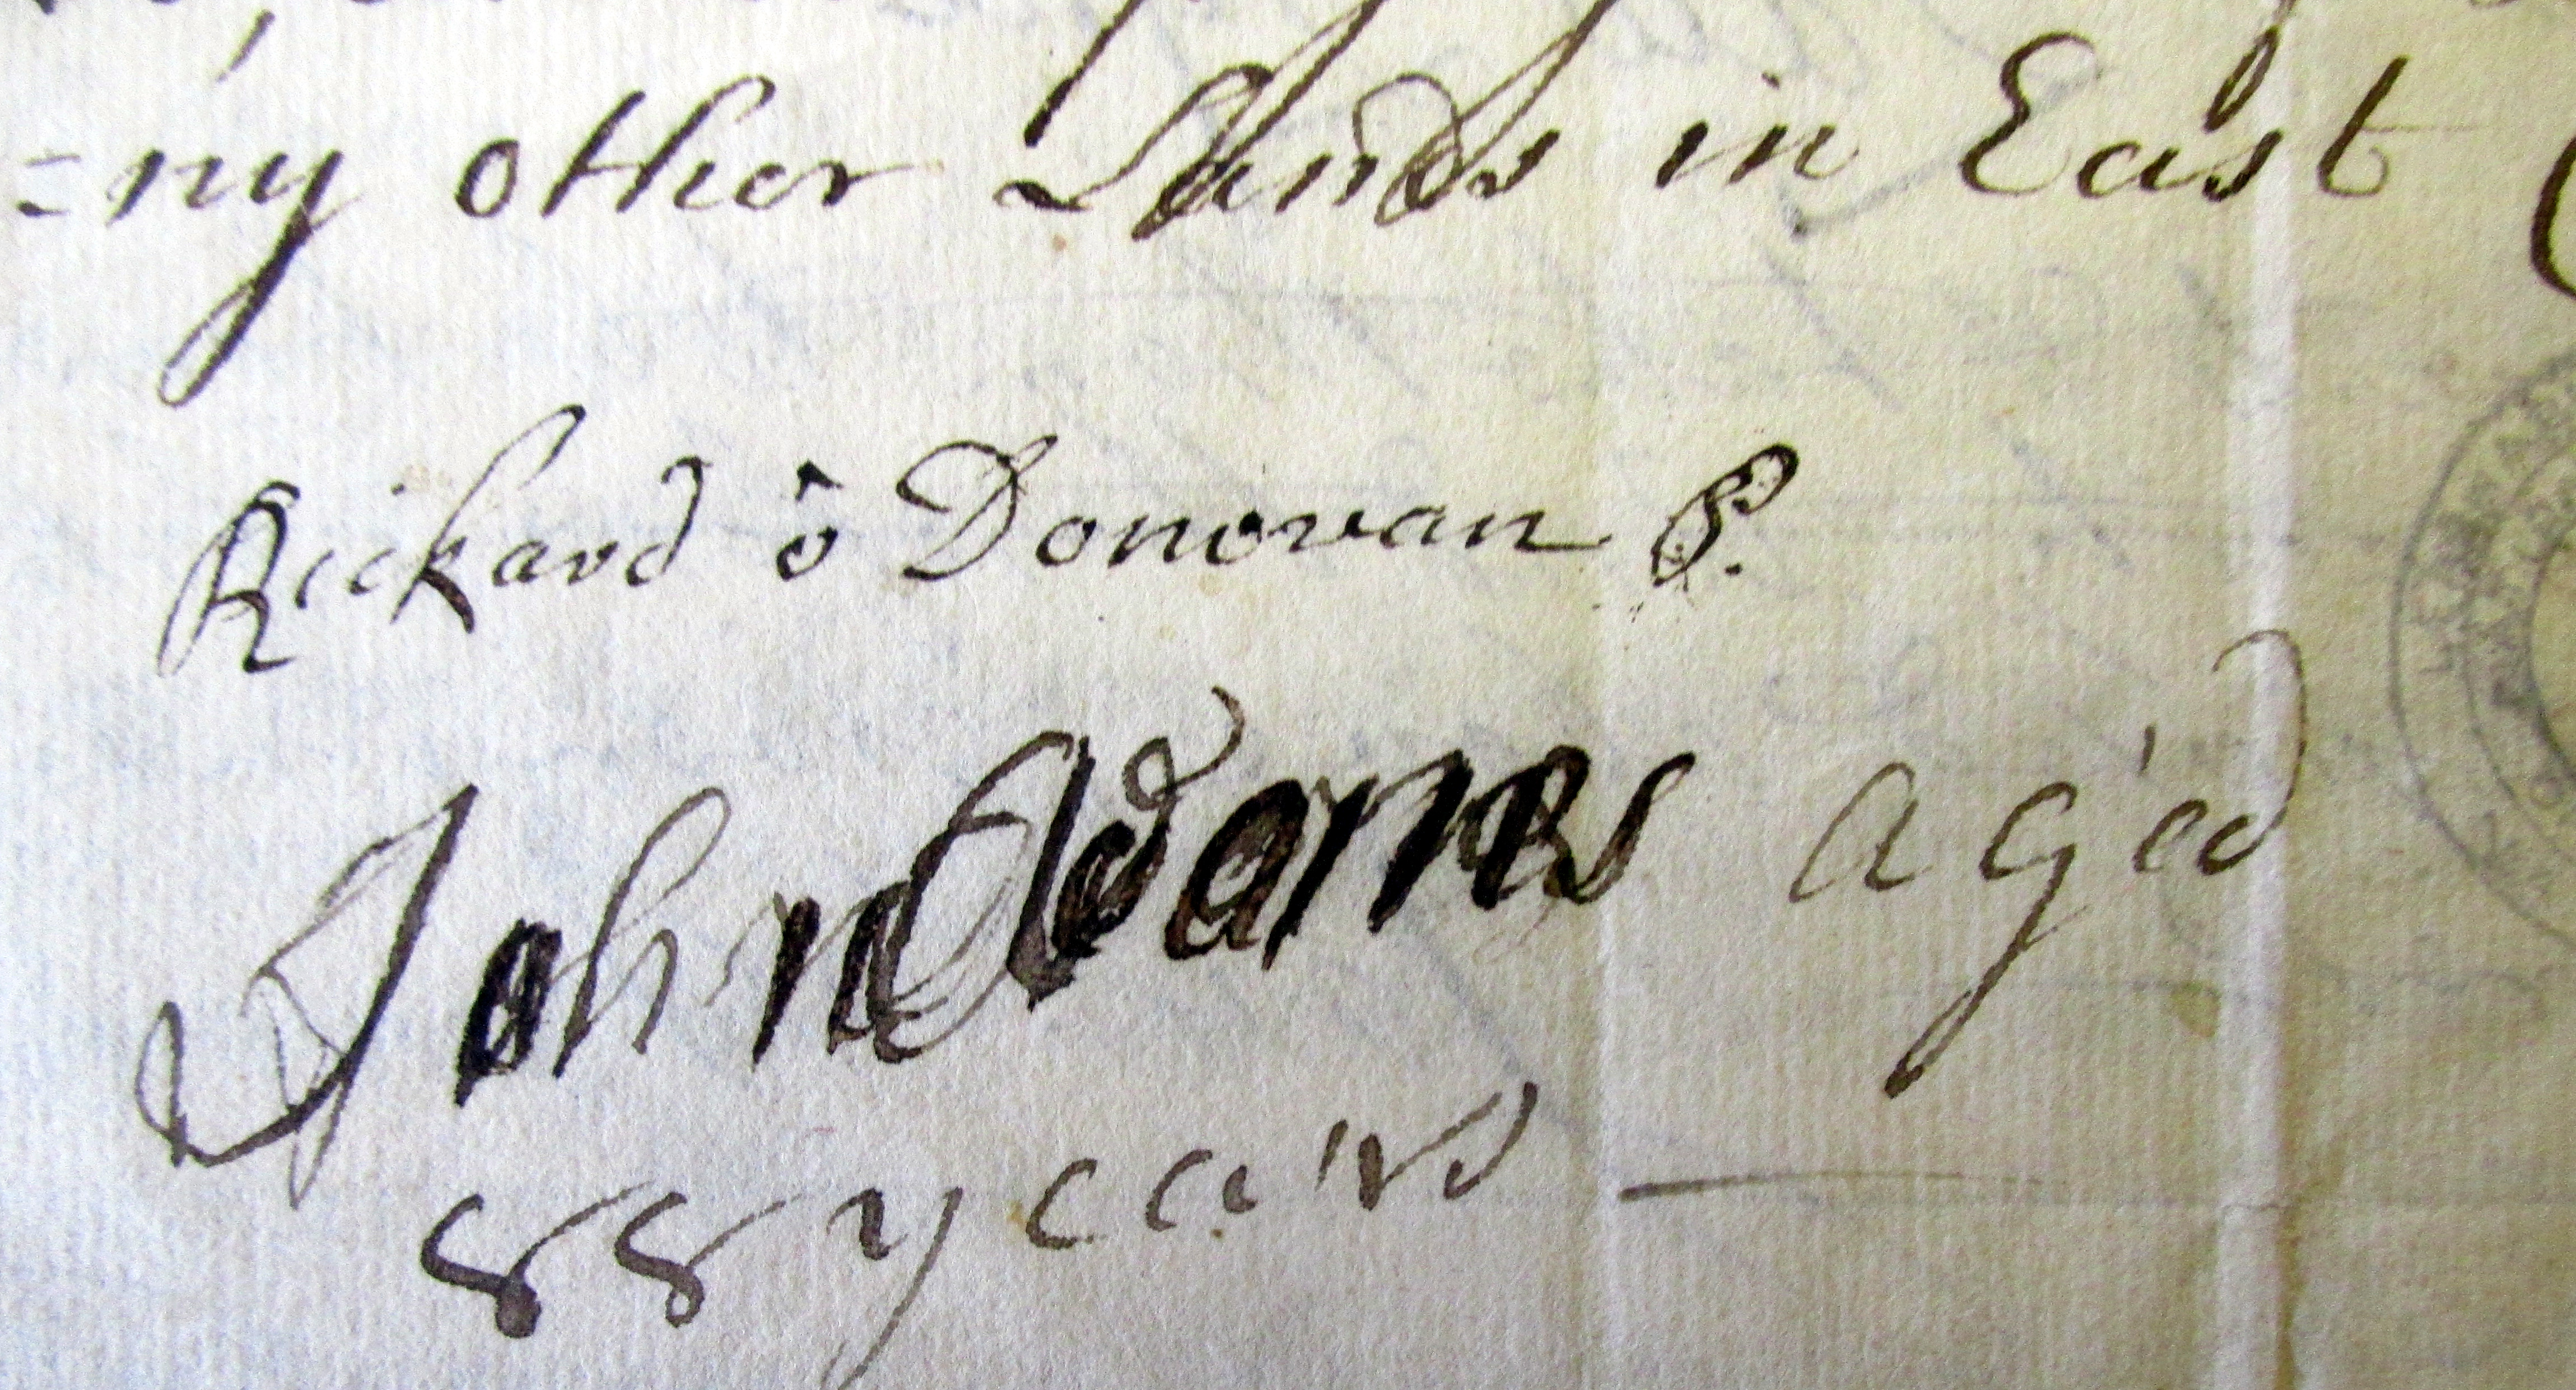 =ny other Lands in East
Rickard ô Donovan P.
John Adams aged
88 years —